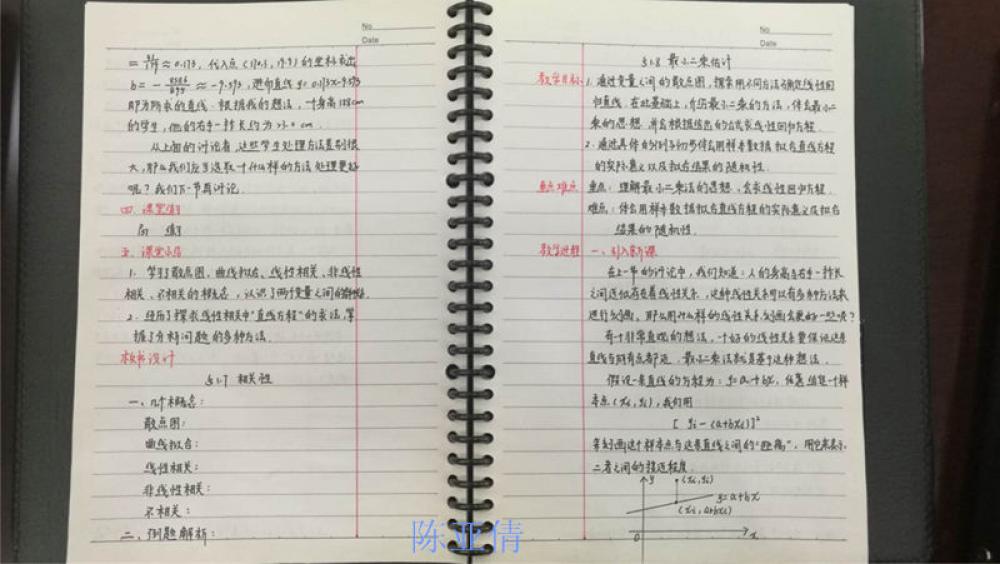 No
Date
≈ 0.173, 代入点
的坐标求出
b = - ≈ -9.593, 进而直线 y = 0.173x - 9.593
即为所求的直线. 根据我的想法, 一个身高 188cm
的学生, 他的右手一拃长约为 23.0 cm.
从上面的讨论看, 这些学生处理方法差别很
大, 那么我们应当选取一个什么样的方法处理更好
呢? 我们下一节再讨论.
四. 课堂练习
练习
五. 课堂小结
1. 学习了散点图、曲线拟合、线性相关、非线性
相关、不相关的概念, 认识了两个变量之间的相关性.
2. 经历了探求线性相关中"直线方程"的求法, 掌
握了分析问题的多种方法.
板书设计
§1.7 相关性
一、几个概念:
散点图:
曲线拟合:
线性相关:
非线性相关:
不相关:
二、例题解析:
No
Date
§1.8 最小二乘估计
教学目标 1. 通过变量之间的散点图, 探索用不同方法确定线性回
归直线. 在此基础上, 介绍最小二乘的方法, 体会最小二
乘的思想, 并会根据给出的公式求线性回归方程.
2. 通过具体的实例初步体会用样本数据拟合直线方程
的实际意义以及拟合结果的随机性.
重点难点 重点: 理解最小二乘法的思想, 会求线性回归方程.
难点: 体会用样本数据拟合直线方程的实际意义及拟合
结果的随机性.
教学进程 一、引入新课
在上一节的讨论中, 我们知道: 人的身高与右手一拃长
之间近似存在着线性关系, 这种线性关系可以有多种方法来
进行刻画, 那么用什么样的线性关系刻画会更好一些呢?
有一个非常直观的想法, 一个好的线性关系要保证这条
直线与所有点都近. 最小二乘法就是基于这种想法.
假设一条直线的方程为: y = a + bx, 任意给定一个样
本点 (xi, yi), 我们用
[ yi - (a+bxi) ]²
来刻画这个样本点与这条直线之间的"距离", 用它来表示
二者之间的接近程度.
y
(xi, yi)
y = a + bx
(xi, a+bxi)
0
x
陈亚倩